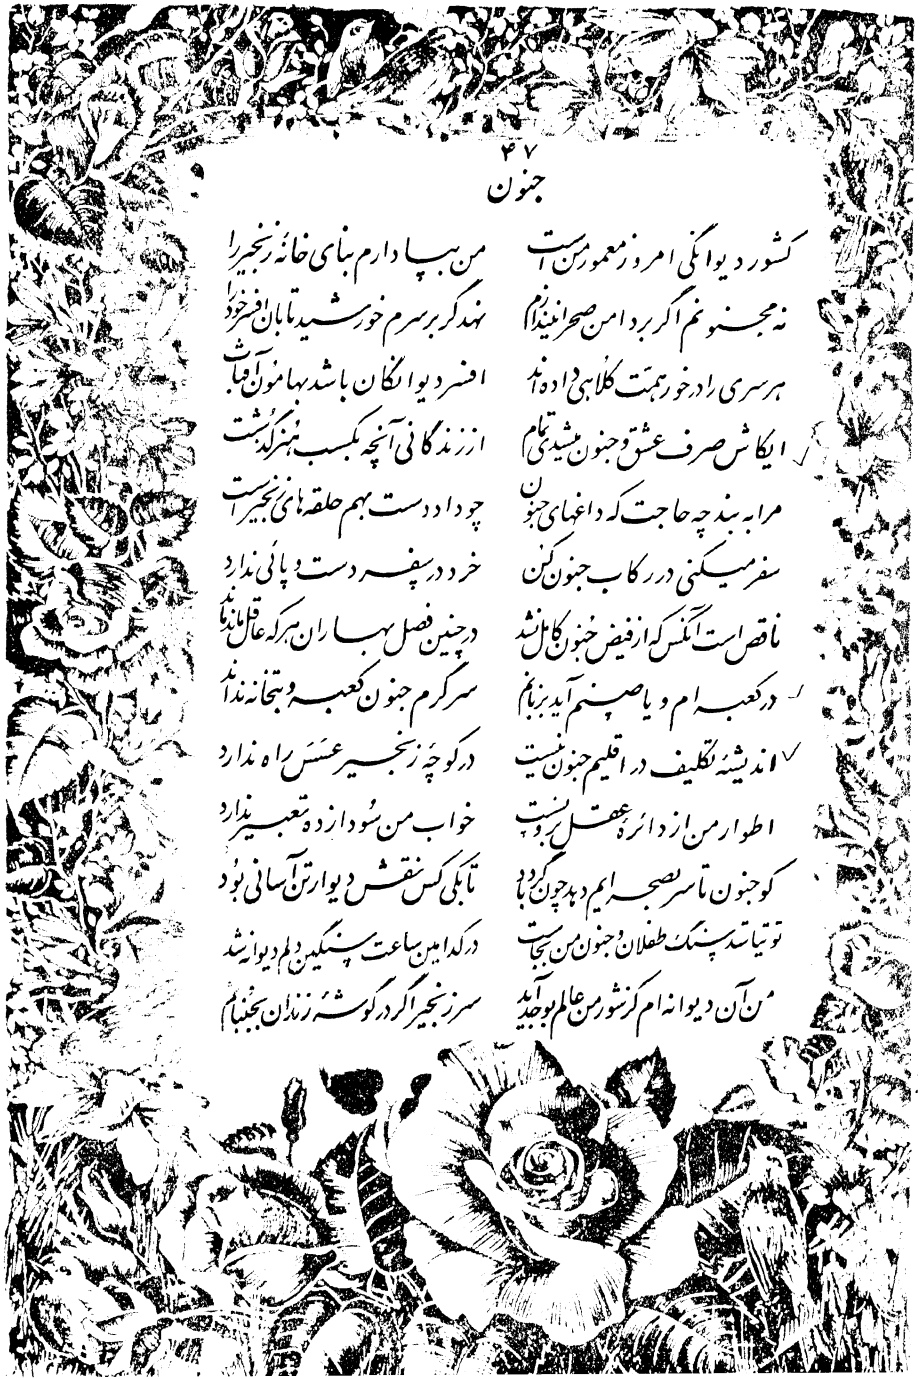 ۴۷
جنون
کشور دیوانگی امروز معمور من است من بپا دارم بنای خانهٔ زنجیر را
نه مجنونم اگر بر دامن صحرا نیندازم نهد گر بر سرم خورشید تابان افسر خود را
هر سری را در خور همت کلاهی داده‌اند افسر دیوانگان باشد بهامون آفتاب
ایکاش صرف عشق و جنون میشدی تمام از زندگانی آنچه بکسب هنر گذشت
مرا به بند چه حاجت که داغهای جنون چو داد دست بهم حلقه‌های زنجیر است
سفر میکنی در رکاب جنون کن خرد در سفر دست و پائی ندارد
ناقص است آنکس که از فیض جنون کامل نشد در چنین فصل بهاران هر که عاقل ماند ماند
در کعبه‌ام و یا صنم آید بزبانم سرگرم جنون کعبه و بتخانه نداند
اندیشهٔ تکلیف در اقلیم جنون نیست در کوچهٔ زنجیر عسس راه ندارد
اطوار من از دائرهٔ عقل برونست خواب من سودازده تعبیر ندارد
کو جنون تا سر بصحرایم دهد چون گردباد تا بکی کس نقش دیوار تن آسانی بود
توتیا شد سنگ طفلان و جنون من بجاست در کدامین ساعت سنگین دلم دیوانه شد
من آن دیوانه‌ام کز شور من عالم بوجد آید سر زنجیر اگر در گوشهٔ زندان بجنبانم